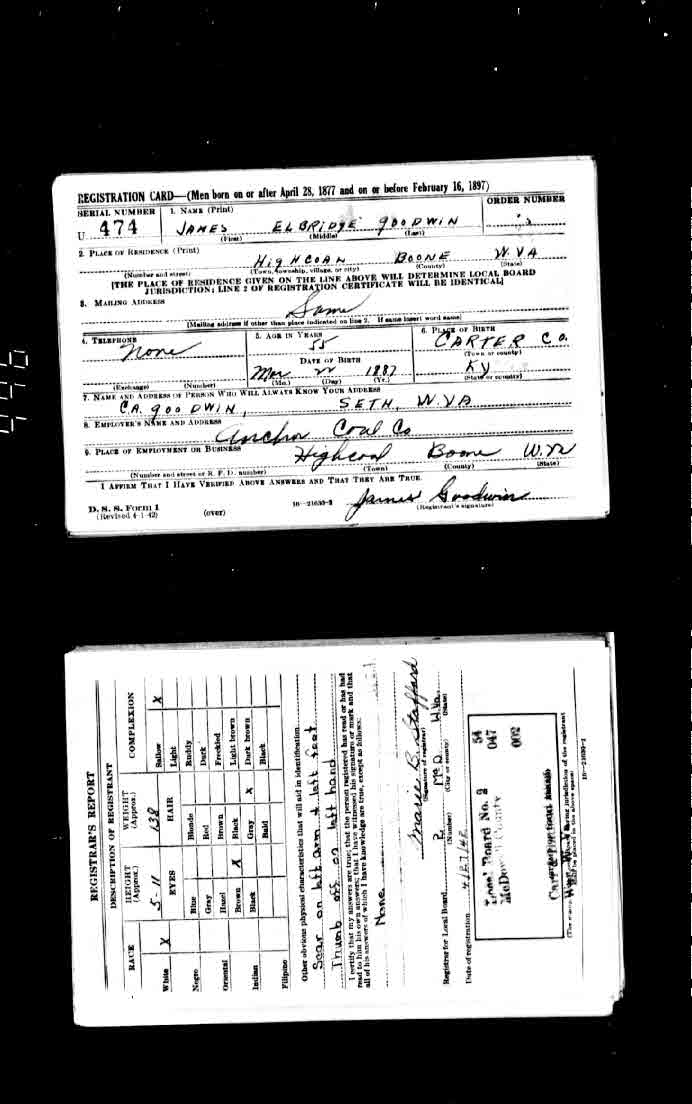 REGISTRATION CARD—(Men born on or after April 28, 1877 and on or before February 16, 1897)
SERIAL NUMBER 1. NAME (Print) ORDER NUMBER
U 474 JAMES ELBRIDGE GOODWIN
(First) (Middle) (Last)
2. PLACE OF RESIDENCE (Print)
HIGHCOAL BOONE W.VA
(Number and street) (Town, township, village, or city) (County) (State)
[THE PLACE OF RESIDENCE GIVEN ON THE LINE ABOVE WILL DETERMINE LOCAL BOARD
JURISDICTION; LINE 2 OF REGISTRATION CERTIFICATE WILL BE IDENTICAL]
3. MAILING ADDRESS
Same
[Mailing address if other than place indicated on line 2. If same insert word same]
4. TELEPHONE 5. AGE IN YEARS 6. PLACE OF BIRTH
None 55 CARTER CO.
(Town or county)
DATE OF BIRTH
Mar 22 1887 KY
(Exchange) (Number) (Mo.) (Day) (Yr.) (State or country)
7. NAME AND ADDRESS OF PERSON WHO WILL ALWAYS KNOW YOUR ADDRESS
CA. GOODWIN, SETH, W.VA
8. EMPLOYER'S NAME AND ADDRESS
Anchor Coal Co
9. PLACE OF EMPLOYMENT OR BUSINESS
Highcoal Boone W.Va
(Number and street or R. F. D. number) (Town) (County) (State)
I AFFIRM THAT I HAVE VERIFIED ABOVE ANSWERS AND THAT THEY ARE TRUE.
James Goodwin
D. S. S. Form 1 16—21630-2 (Registrant's signature)
(Revised 4-1-42) (over)
REGISTRAR'S REPORT
DESCRIPTION OF REGISTRANT
RACE HEIGHT (Approx.) WEIGHT (Approx.) COMPLEXION
White X 5-11 138 Sallow X
EYES HAIR Light
Negro Blue Blonde Ruddy
Gray Red Dark
Oriental Hazel Brown Freckled
Brown X Black Light brown
Indian Black Gray X Dark brown
Bald Black
Filipino
Other obvious physical characteristics that will aid in identification
Scar on left arm + left feet
Thumb off on left hand
I certify that my answers are true; that the person registered has read or has had
read to him his own answers; that I have witnessed his signature or mark and that
all of his answers of which I have knowledge are true, except as follows:
None
Marie B. Stafford
(Signature of registrar)
Registrar for Local Board 2 McD W.Va
(Number) (City or county) (State)
Date of registration 4/27/42
Local Board No. 2 54
McDowell County 047
002
16—21630-2